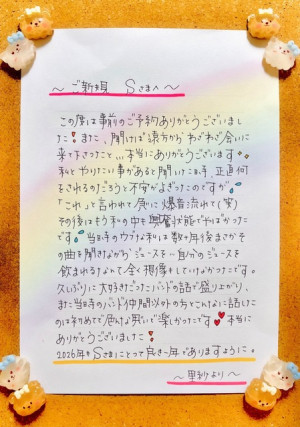 ～ご新規 Sさまへ～
この度は事前のご予約ありがとうございまし
た！また、聞けば遠方からわざわざ会いに
来て下さったこと…本当にありがとうございます
私とやりたい事があると聞いた時、正直何
をされるのだろうと不安がよぎったのですが
「これ」と言われて戻に爆音流れて(笑)
その後はもう私の中を興奮状態でやばかったで
す 当時のウブな私は数十年後まさかそ
の曲を聞きながらジュースを…自分のジュースを
飲まれるなんて全く想像もしていなかったです。
久しぶりに大好きだったバンドの話で盛り上がり、
また当時のバンド仲間以外の方とこんなに話した
のは初めてで色んな思いで楽しかったです 本当に
ありがとうございました！
2026年もSさまにとって良き一年でありますように。
～里紗より～